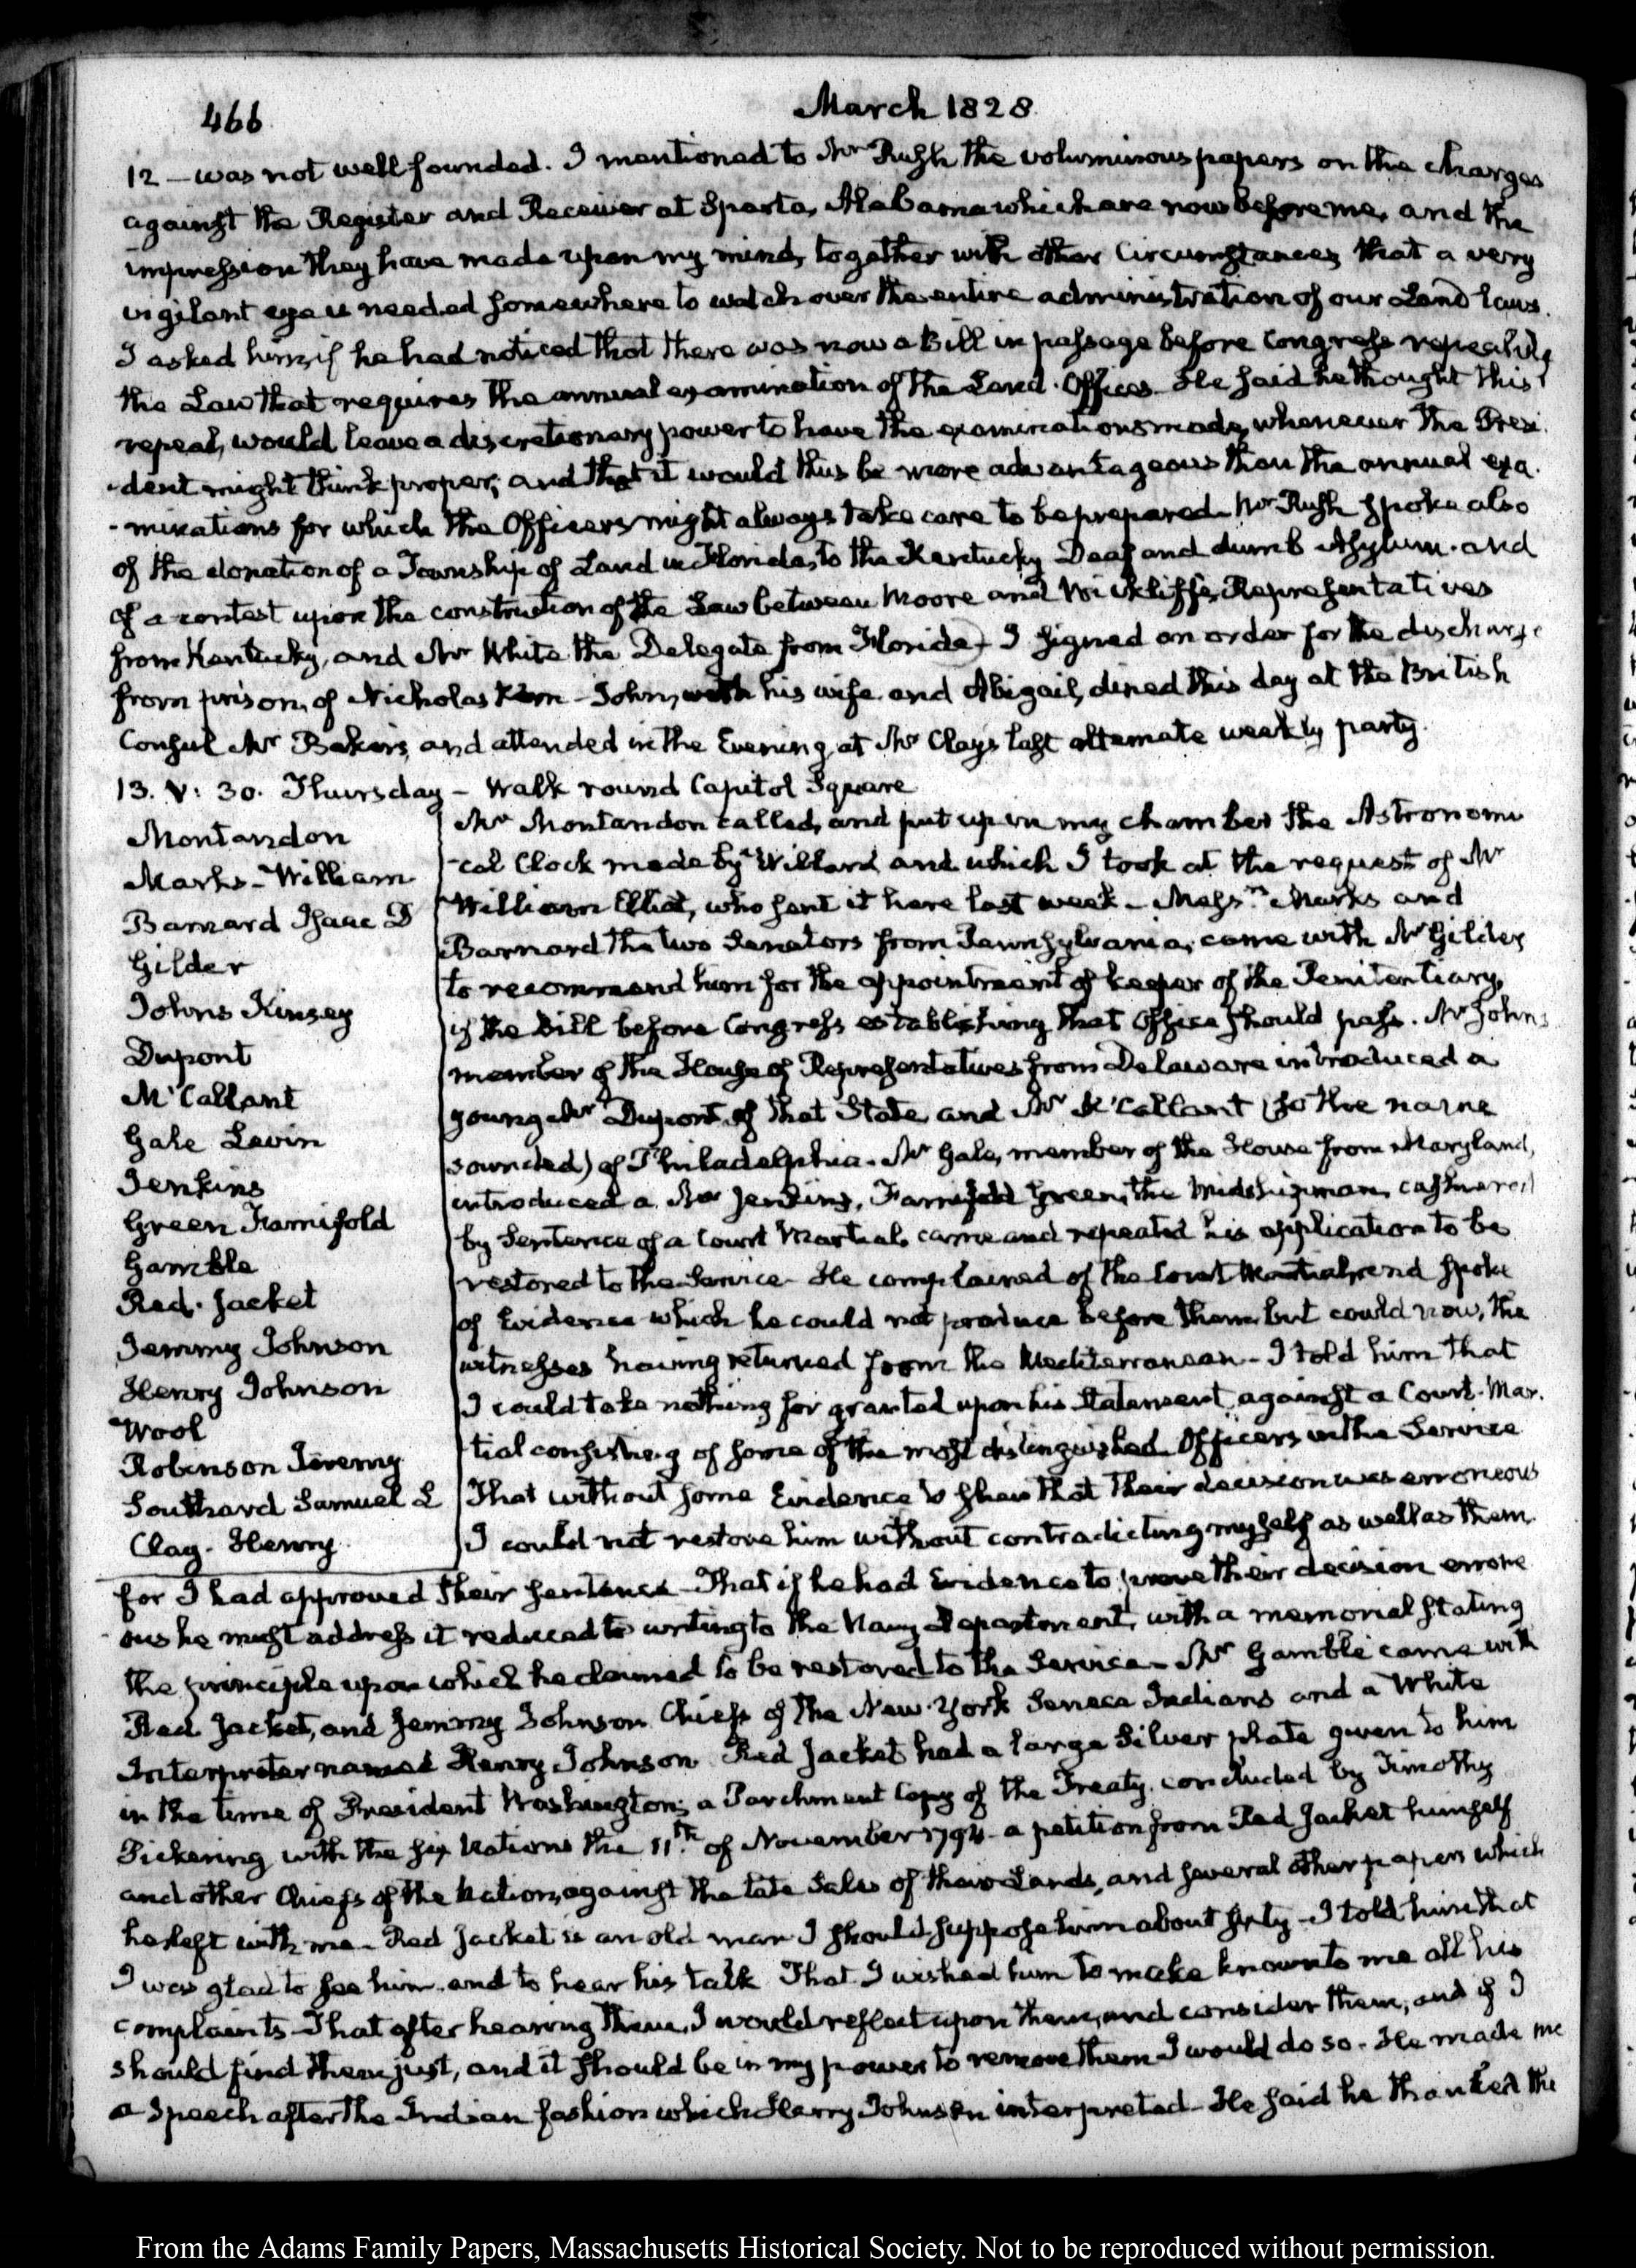 466
March 1828
12 — was not well founded. I mentioned to Mr Rush the voluminous papers on the charges
against the Register and Receiver at Sparta, Alabama which are now before me, and the
impression they have made upon my mind, together with other Circumstances, that a very
vigilant eye is needed somewhere to watch over the entire administration of our Land laws.
I asked him, if he had noticed that there was now a Bill in passage before Congress repealing
the Law that requires the annual examination of the Land-Offices. He said he thought this
repeal, would leave a discretionary power to have the examinations made, whenever the Presi-
-dent might think proper; and that it would thus be more advantageous than the annual exa-
-minations for which the Officers might always take care to be prepared. Mr Rush spoke also
of the donation of a Township of Land in Florida, to the Kentucky Deaf and dumb Asylum. and
of a contest upon the construction of the Law between Moore and Wickliffe, Representatives
from Kentucky, and Mr White the Delegate from Florida — I signed an order for the discharge
from prison, of Nicholas Kern — John, with his wife and Abigail, dined this day at the British
Consul Mr Baker's, and attended in the Evening, at Mr Clay's last alternate weekly party.
13. V: 30. Thursday — Walk round Capitol Square
Montandon
Marks — William
Barnard Isaac D
Gilder
Johns Kinsey
Dupont
M'Callant
Gale Levin
Jenkins
Green Farnifold
Gamble
Red-Jacket
Jemmy Johnson
Henry Johnson
Wool
Robinson Jeremy
Southard Samuel L
Clay. Henry
Mr Montandon called, and put up in my chamber the Astronomi
-cal Clock made by Willard and which I took at the request of Mr
William Elliot, who sent it here last week — Messrs Marks and
Barnard the two Senators from Pennsylvania, came with Mr Gilder,
to recommend him for the appointment of keeper of the Penitentiary,
if the Bill before Congress establishing that Office should pass. Mr Johns
member of the House of Representatives from Delaware introduced a
young Mr Dupont, of that State and Mr M'Callant (so the name
sounded) of Philadelphia. Mr Gale, member of the House from Maryland,
introduced a Mr Jenkins, Farnifold Green, the Midshipman, cashiered
by Sentence of a Court Martial, came and repeated his application to be
restored to the Service. He complained of the Court Martial, and spoke
of Evidence which he could not produce before them, but could now, the
witnesses having returned from the Mediterranean — I told him that
I could take nothing for granted upon his statement against a Court-Mar.
tial consisting of some of the most distinguished Officers in the Service
That without some Evidence to shew that their decision was erroneous
I could not restore him without contradicting myself as well as them
for I had approved their sentence — That if he had Evidence to prove their decision errone
-ous he must address it reduced to writing to the Navy Department, with a memorial stating
the principle upon which he claimed to be restored to the Service — Mr Gamble came with
Red Jacket, and Jemmy Johnson Chiefs of the New-York Seneca Indians and a White
Interpreter named Henry Johnson. Red Jacket had a large Silver plate given to him
in the time of President Washington; a Parchment Copy of the Treaty concluded by Timothy
Pickering with the six Nations the 11th of November 1794 — a petition from Red Jacket himself
and other Chiefs of the Nation, against the late Sales of their Lands, and several other papers which
he left with me — Red Jacket is an old man I should suppose him about sixty — I told him that
I was glad to see him and to hear his talk That I wished him to make known to me all his
complaints — That after hearing them, I would reflect upon them, and consider them, and if I
should find them just, and it should be in my power to remove them I would do so. He made me
a Speech after the Indian fashion which Harry Johnson interpreted — He said he thanked the
From the Adams Family Papers, Massachusetts Historical Society. Not to be reproduced without permission.